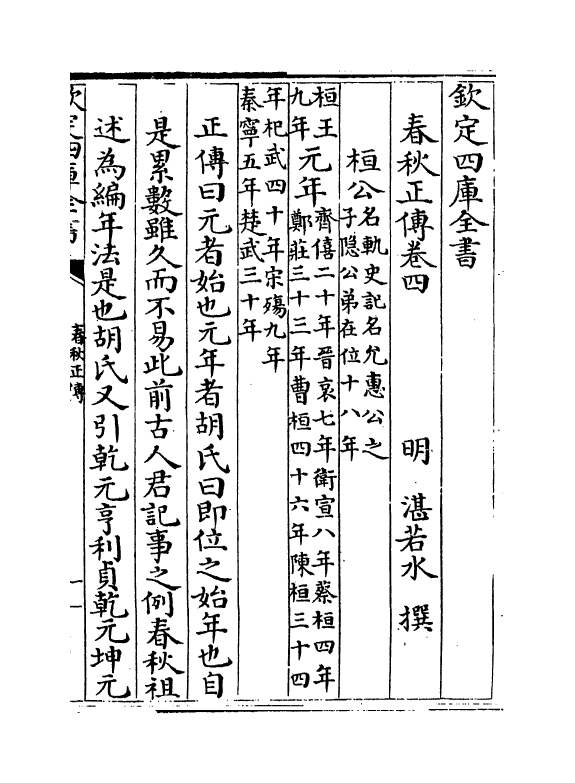 欽定四庫全書
春秋正傳卷四
明 湛若水 撰
桓公名軌史記名允惠公之
子隱公弟在位十八年
桓王
九年元年齊僖二十年晉哀七年衛宣八年蔡桓四年
鄭莊三十三年曹桓四十六年陳桓三十四
年杞武四十年宋殤九年
秦寧五年楚武三十年
正傳曰元者始也元年者胡氏曰即位之始年也自
是累數雖久而不易此前古人君記事之例春秋祖
述為編年法是也胡氏又引乾元亨利貞乾元坤元
欽定四庫全書
春秋正傳
一